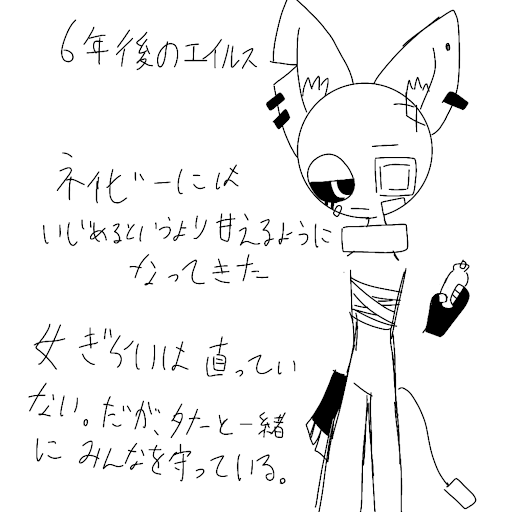 6年後のエイルス
ネイビーには
いじめるというより甘えるように
なってきた
女ぎらいは直ってい
ない。だが、タナーと一緒
に みんなを守っている。